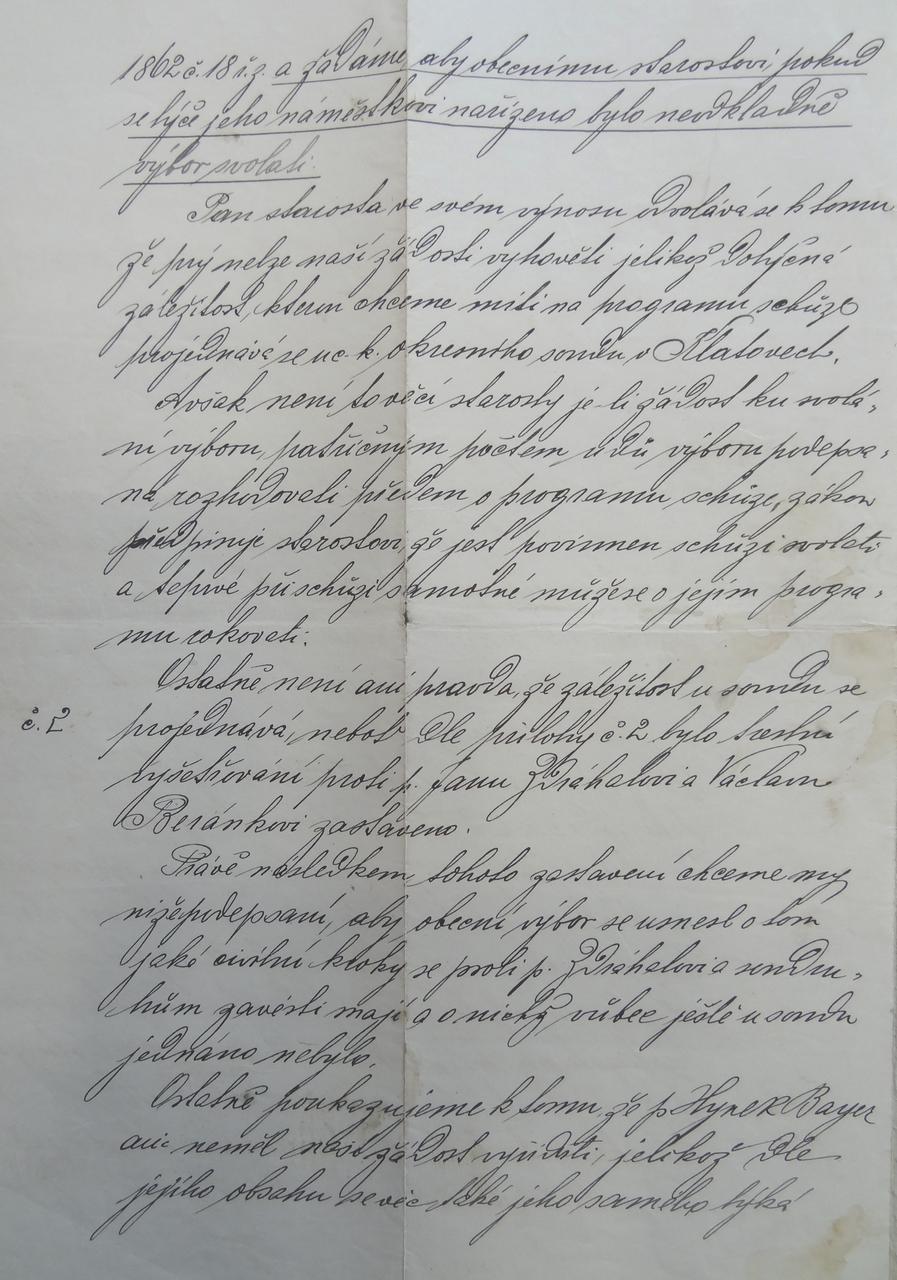 1862 č. 18 ř. z. a žádáme, aby obecnímu starostovi, pokud
se týče jeho náměstkovi nařízeno bylo neodkladně
výbor svolati.
Pan starosta ve svém výnosu odvolává se k tomu
že prý nelze naší žádosti vyhověti jelikož dotyčná
záležitost, kterou chceme míti na programu schůze
projednává se u c. k. okresního soudu v Klatovech.
Avšak není to věcí starosty je-li žádost ku svolá-
ní výboru, patřičným počtem údů výboru podepsa-
na rozhodovati předem o programu schůze, zákon
předpisuje starostovi, že jest povinnen schůzi svolati
a teprvé při schůzi samotné může se o jejím progra-
mu rokovati.
Ostatně není ani pravda, že záležitost u soudu se
č. 2 projednává, neboť dle přílohy č. 2 bylo trestní
vyšetřování proti p. Janu Zdráhalovi a Václavu
Beránkovi zastaveno.
Právě následkem tohoto zastavení chceme my
nížepodepsaní, aby obecní výbor se usnesl o tom
jaké civilní kroky se proti p. Zdráhalovi a soudru-
hům zavésti mají a o nichž vůbec ještě u soudu
jednáno nebylo.
Ostatně poukazujeme k tomu, že p Hynek Bayer
ani neměl naši žádost vyříditi, jelikož dle
jejího obsahu se věc také jeho samého týká